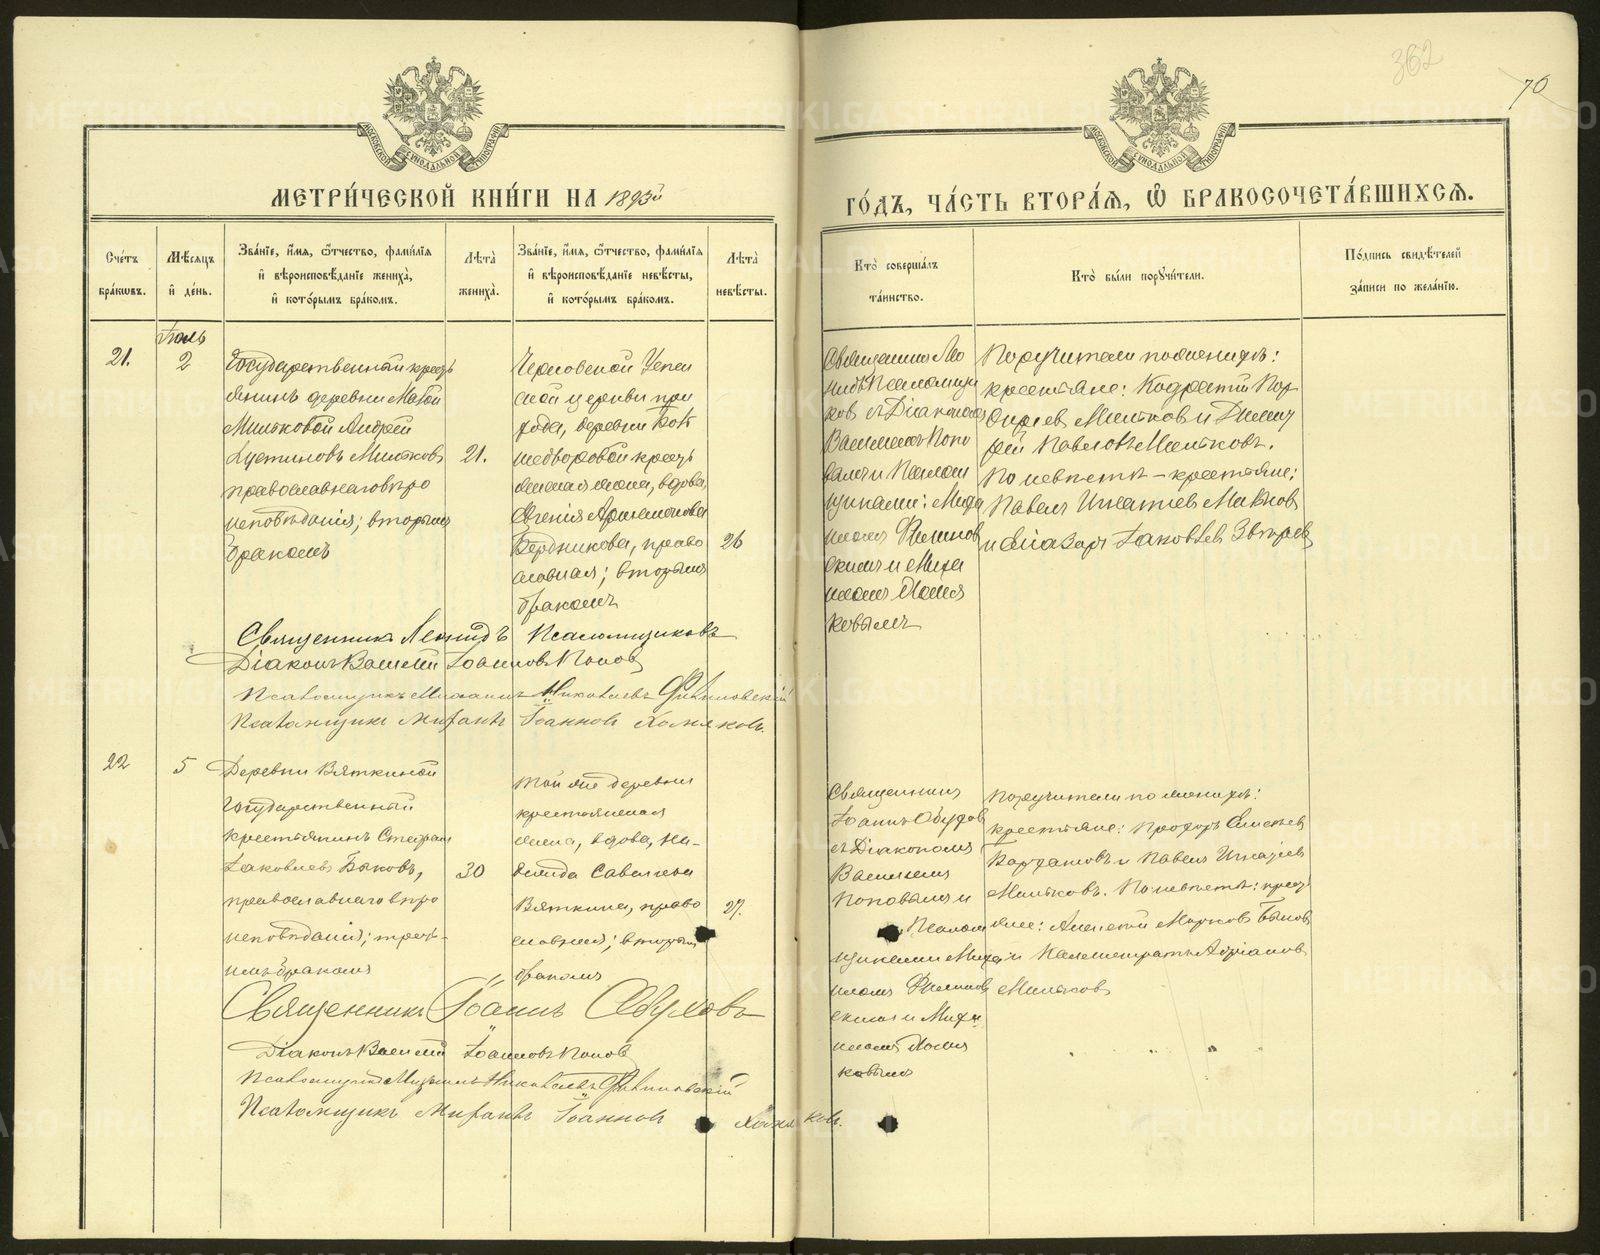 362
70
МОСКОВСКОЙ СѴНОДАЛЬНОЙ ТИПОГРАФІИ
МОСКОВСКОЙ СѴНОДАЛЬНОЙ ТИПОГРАФІИ
МЕТРИ́ЧЕСКОЙ КНИ́ГИ НА 1893й
ГО́ДЪ, ЧА́СТЬ ВТОРА́Я, Ѡ҆ БРАКОСОЧЕТА́ВШИХСЯ.
Сче́тъ бра́ковъ.
Мѣ́сяцъ и҆ де́нь.
Зва́нїе, и҆́мя, ѻ҆́тчество, фами́лїѧ и҆ вѣроисповѣ́данїе жениха̀, и҆ кото́рымъ бра́комъ.
Лѣта̀ жениха̀.
Зва́нїе, и҆́мя, ѻ҆́тчество, фами́лїѧ и҆ вѣроисповѣ́данїе невѣ́сты, и҆ кото́рымъ бра́комъ.
Лѣта̀ невѣ́сты.
Кто̀ соверша́лъ та́инство.
Кто̀ бы́ли порꙋчи́тели.
По́дпись свидѣ́телей за́писи по жела́нїю.
21.
Іюль
2
Государственный кресть
янинъ деревни Малой
Мильковой Андрей
Іустиновъ Мильковъ
православнаго вѣро
исповѣданія; вторымъ
бракомъ
21.
церкви при
хода, деревни
кресть
янская жена, вдова,
Евгенія Артемонова
Бердникова, право
славная; вторымъ
бракомъ
26
Священникъ Лео
нидъ Псаломщи
ковъ съ Діакономъ
Василіемъ Попо
вымъ и Псалом
щиками: Миха
иломъ Филипов
скимъ и Миха
иломъ Хомя
ковымъ
Поручители по женихѣ:
крестьяне: Кодратій Пор
фирьев Мильков и Тимо
фей Павловъ Мильковъ.
По невѣстѣ – крестьяне:
Павелъ Игнатіев
и Елиазаръ Іаковлев Звѣрев
Священникъ Леонидъ Псаломщиковъ
Діаконъ Василій Іоанновъ Попов
Псаломщикъ Михаилъ Николаевъ Филиповскій
Псаломщикъ Михаилъ Іоаннов Хомяковъ.
22
5
Деревни Вяткиной
Государственный
крестьянинъ Стефанъ
Іаковлевъ Быковъ,
православнаго вѣро
исповѣданія; треть-
имъ бракомъ
30
той же деревни
крестьянская
жена, вдова,
Савельева
Вяткина, право
славная; вторымъ
бракомъ
27.
Священникъ
Іоаннъ Обудов
съ Діакономъ
Василіемъ
Поповымъ и
Псалом
щиками Миха
иломъ Филипов
скимъ и Миха
иломъ Хомя
ковымъ
Поручители по женихѣ:
крестьяне: Прохоръ Елисѣев
и Павелъ Игнатіев
Мильковъ. По невѣстѣ: кресть
яне: Алексѣй Марковъ Быков
и Адріанов
Мильков
Священникъ Іоаннъ Обудовъ
Діаконъ Василій Іоанновъ Попов
Псаломщикъ Михаилъ Николаевъ Филиповскій
Псаломщикъ Михаилъ Іоаннов Хомяков.
METRIKI.GASO-URAL.RU